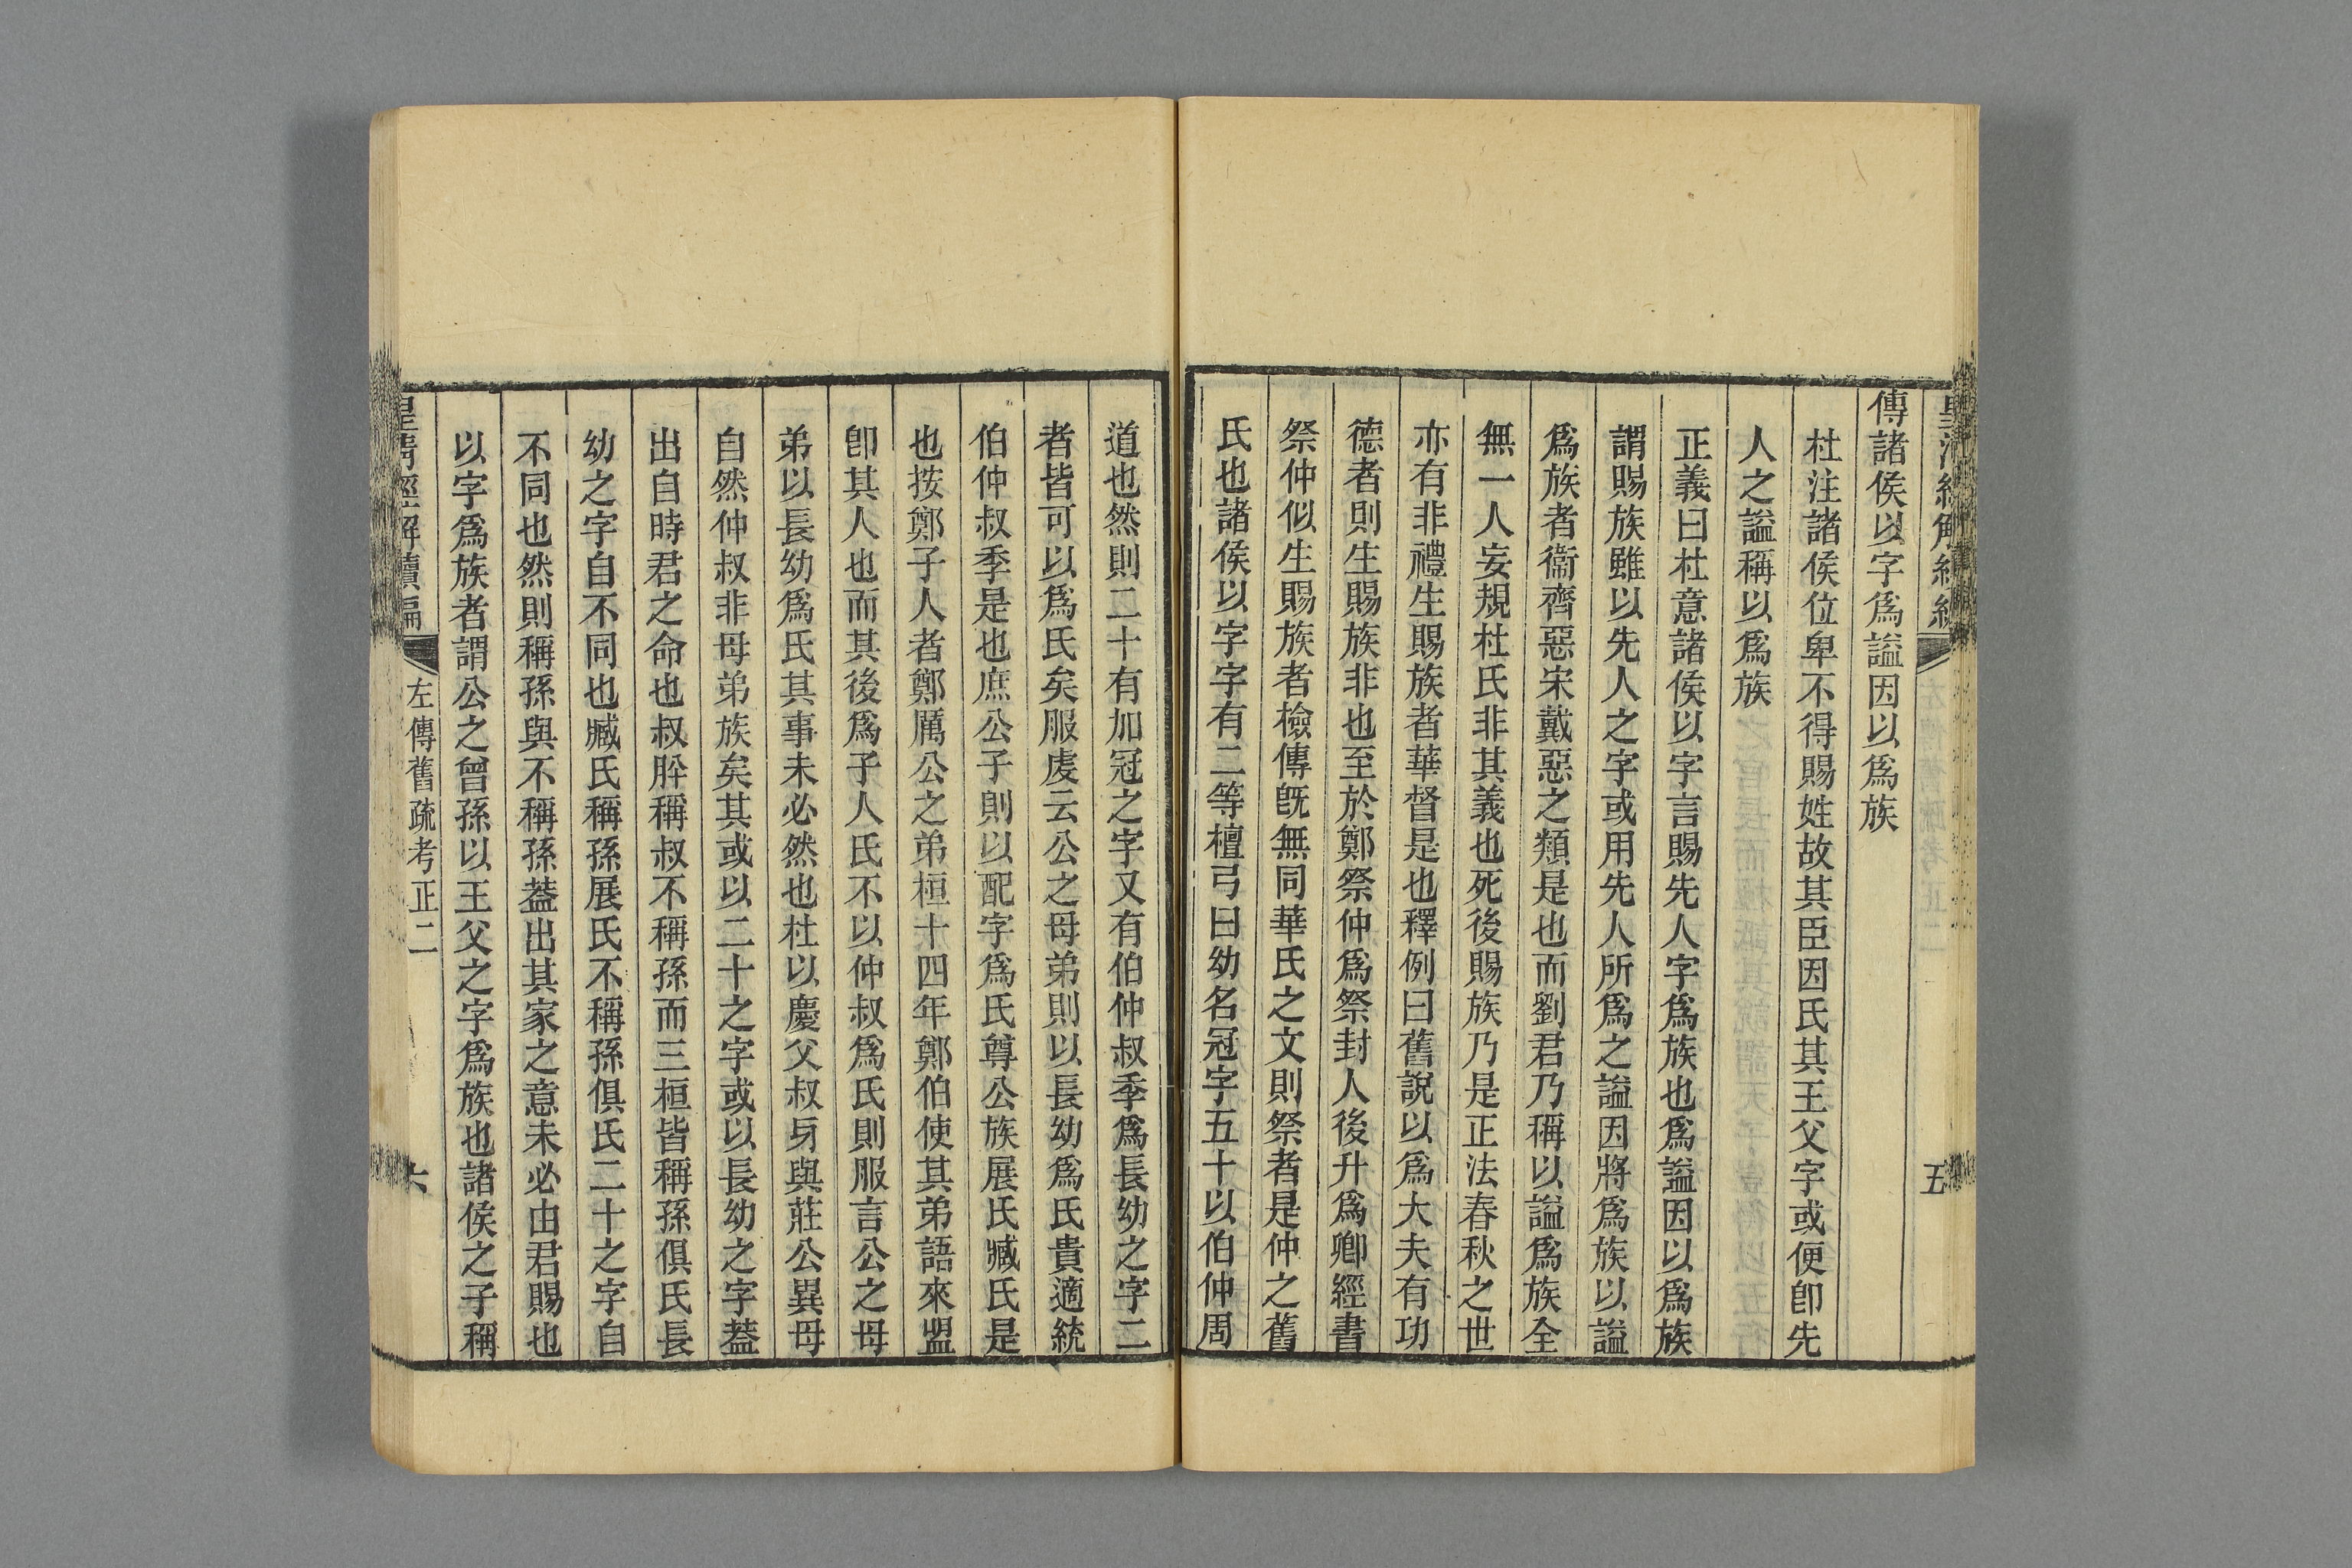 五
傳諸侯以字爲謚因以爲族
杜注諸侯位卑不得賜姓故其臣因氏其王父字或便卽先
人之謚稱以爲族
正義曰杜意諸侯以字言賜先人字爲族也爲謚因以爲族
謂賜族雖以先人之字或用先人所爲之謚因將爲族以謚
爲族者衞齊惡宋戴惡之類是也而劉君乃稱以謚爲族全
無一人妄規杜氏非其義也死後賜族乃是正法春秋之世
亦有非禮生賜族者華督是也釋例曰舊說以爲大夫有功
德者則生賜族非也至於鄭祭仲爲祭封人後升爲卿經書
祭仲似生賜族者檢傳旣無同華氏之文則祭者是仲之舊
氏也諸侯以字字有二等檀弓曰幼名冠字五十以伯仲周
道也然則二十有加冠之字又有伯仲叔季爲長幼之字二
者皆可以爲氏矣服虔云公之母弟則以長幼爲氏貴適統
伯仲叔季是也庶公子則以配字爲氏尊公族展氏臧氏是
也按鄭子人者鄭厲公之弟桓十四年鄭伯使其弟語來盟
卽其人也而其後爲子人氏不以仲叔爲氏則服言公之母
弟以長幼爲氏其事未必然也杜以慶父叔牙與莊公異母
自然仲叔非母弟族矣其或以二十之字或以長幼之字蓋
出自時君之命也叔肸稱叔不稱孫而三桓皆稱孫俱氏長
幼之字自不同也臧氏稱孫展氏不稱孫俱氏二十之字自
不同也然則稱孫與不稱孫蓋出其家之意未必由君賜也
以字爲族者謂公之曾孫以王父之字爲族也諸侯之子稱
皇淸經解續編
左傳舊疏考正二
六